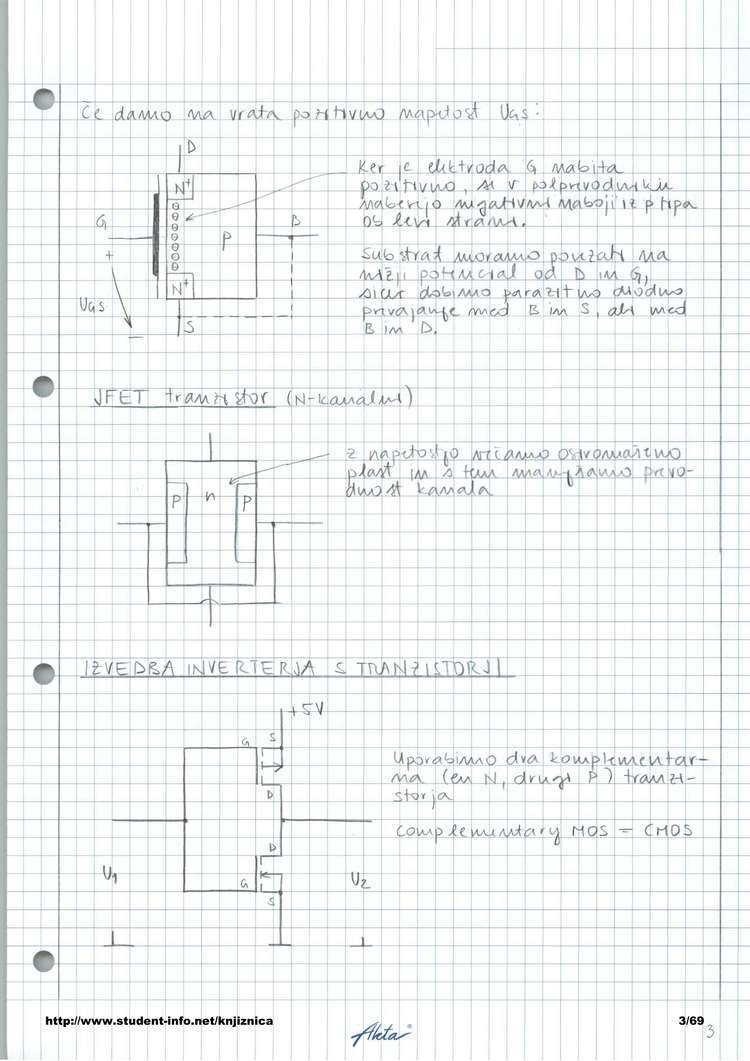 Če damo na vrata pozitivno napetost UGS:
D
N+
G
P
B
+
N+
UGS
S
Ker je elektroda G nabita
pozitivno, se v polprevodniku
naberejo negativni naboji iz p tipa
ob levi strani.
Substrat moramo povezati na
nižji potencial od D in G,
sicer dobimo parazitno diodno
prevajanje med B in S, ali med
B in D.
JFET tranzistor (N-kanalni)
P
n
P
z napetostjo večamo osiromašeno
plast in s tem manjšamo prevo-
dnost kanala
IZVEDBA INVERTERJA S TRANZISTORJI
+5V
G
S
D
D
G
S
U1
U2
Uporabimo dva komplementar-
na (en N, drugi P) tranzi-
storja
Complementary MOS = CMOS
http://www.student-info.net/knjiznica
Akta
3/69
3